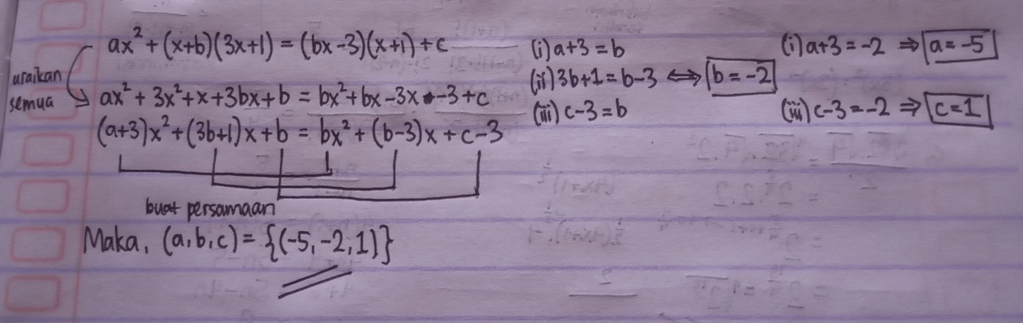 ax² + (x+b)(3x+1) = (bx-3)(x+1)+c
uraikan
semua
ax² + 3x² + x + 3bx + b = bx² + bx - 3x - 3 + c
(a+3)x² + (3b+1)x + b = bx² + (b-3)x + c - 3
buat persamaan
Maka, (a,b,c) = {(-5,-2,1)}
(i) a+3 = b
(ii) 3b+1 = b-3 ⟺ b = -2
(iii) c-3 = b
(i) a+3 = -2 ⇒ a = -5
(iii) c-3 = -2 ⇒ c = 1